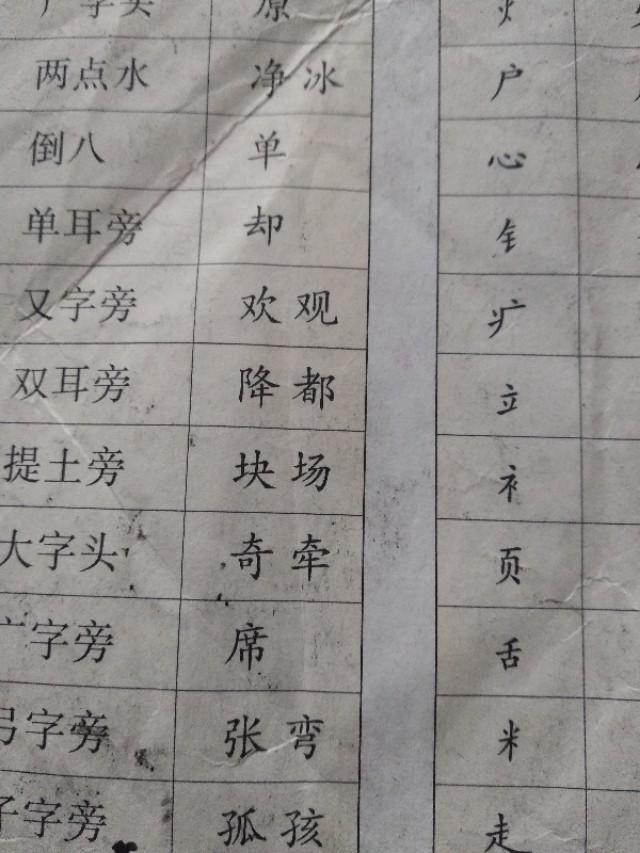 厂字头 原 火
两点水 净 冰 户
倒八 单 心
单耳旁 却 钅
又字旁 欢 观 疒
双耳旁 降 都 立
提土旁 块 场 衤
大字头 奇 牵 页
广字旁 席 舌
弓字旁 张 弯 米
子字旁 孤 孩 走